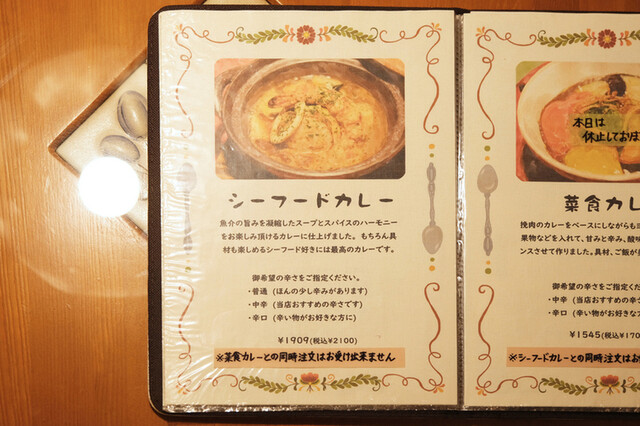 シーフードカレー
魚介の旨みを凝縮したスープとスパイスのハーモニー
をお楽しみ頂けるカレーに仕上げました。もちろん具
材も楽しめるシーフード好きには最高のカレーです。
御希望の辛さをご指定ください。
・普通 (ほんの少し辛みがあります)
・中辛 (当店おすすめの辛さです)
・辛口 (辛い物がお好きな方に)
¥1909(税込¥2100)
※菜食カレーとの同時注文はお受け出来ません
本日は
休止しておりま
菜食カレ
挽肉のカレーをベースにしながらも
果物などを入れて、甘みと辛み、酸味
ンスさせて作りました。具材、ご飯が
御希望の辛さをご指定
・中辛 (当店おすすめの辛
・辛口 (辛い物がお好き
¥1545(税込¥170
※シーフードカレーとの同時注文はお